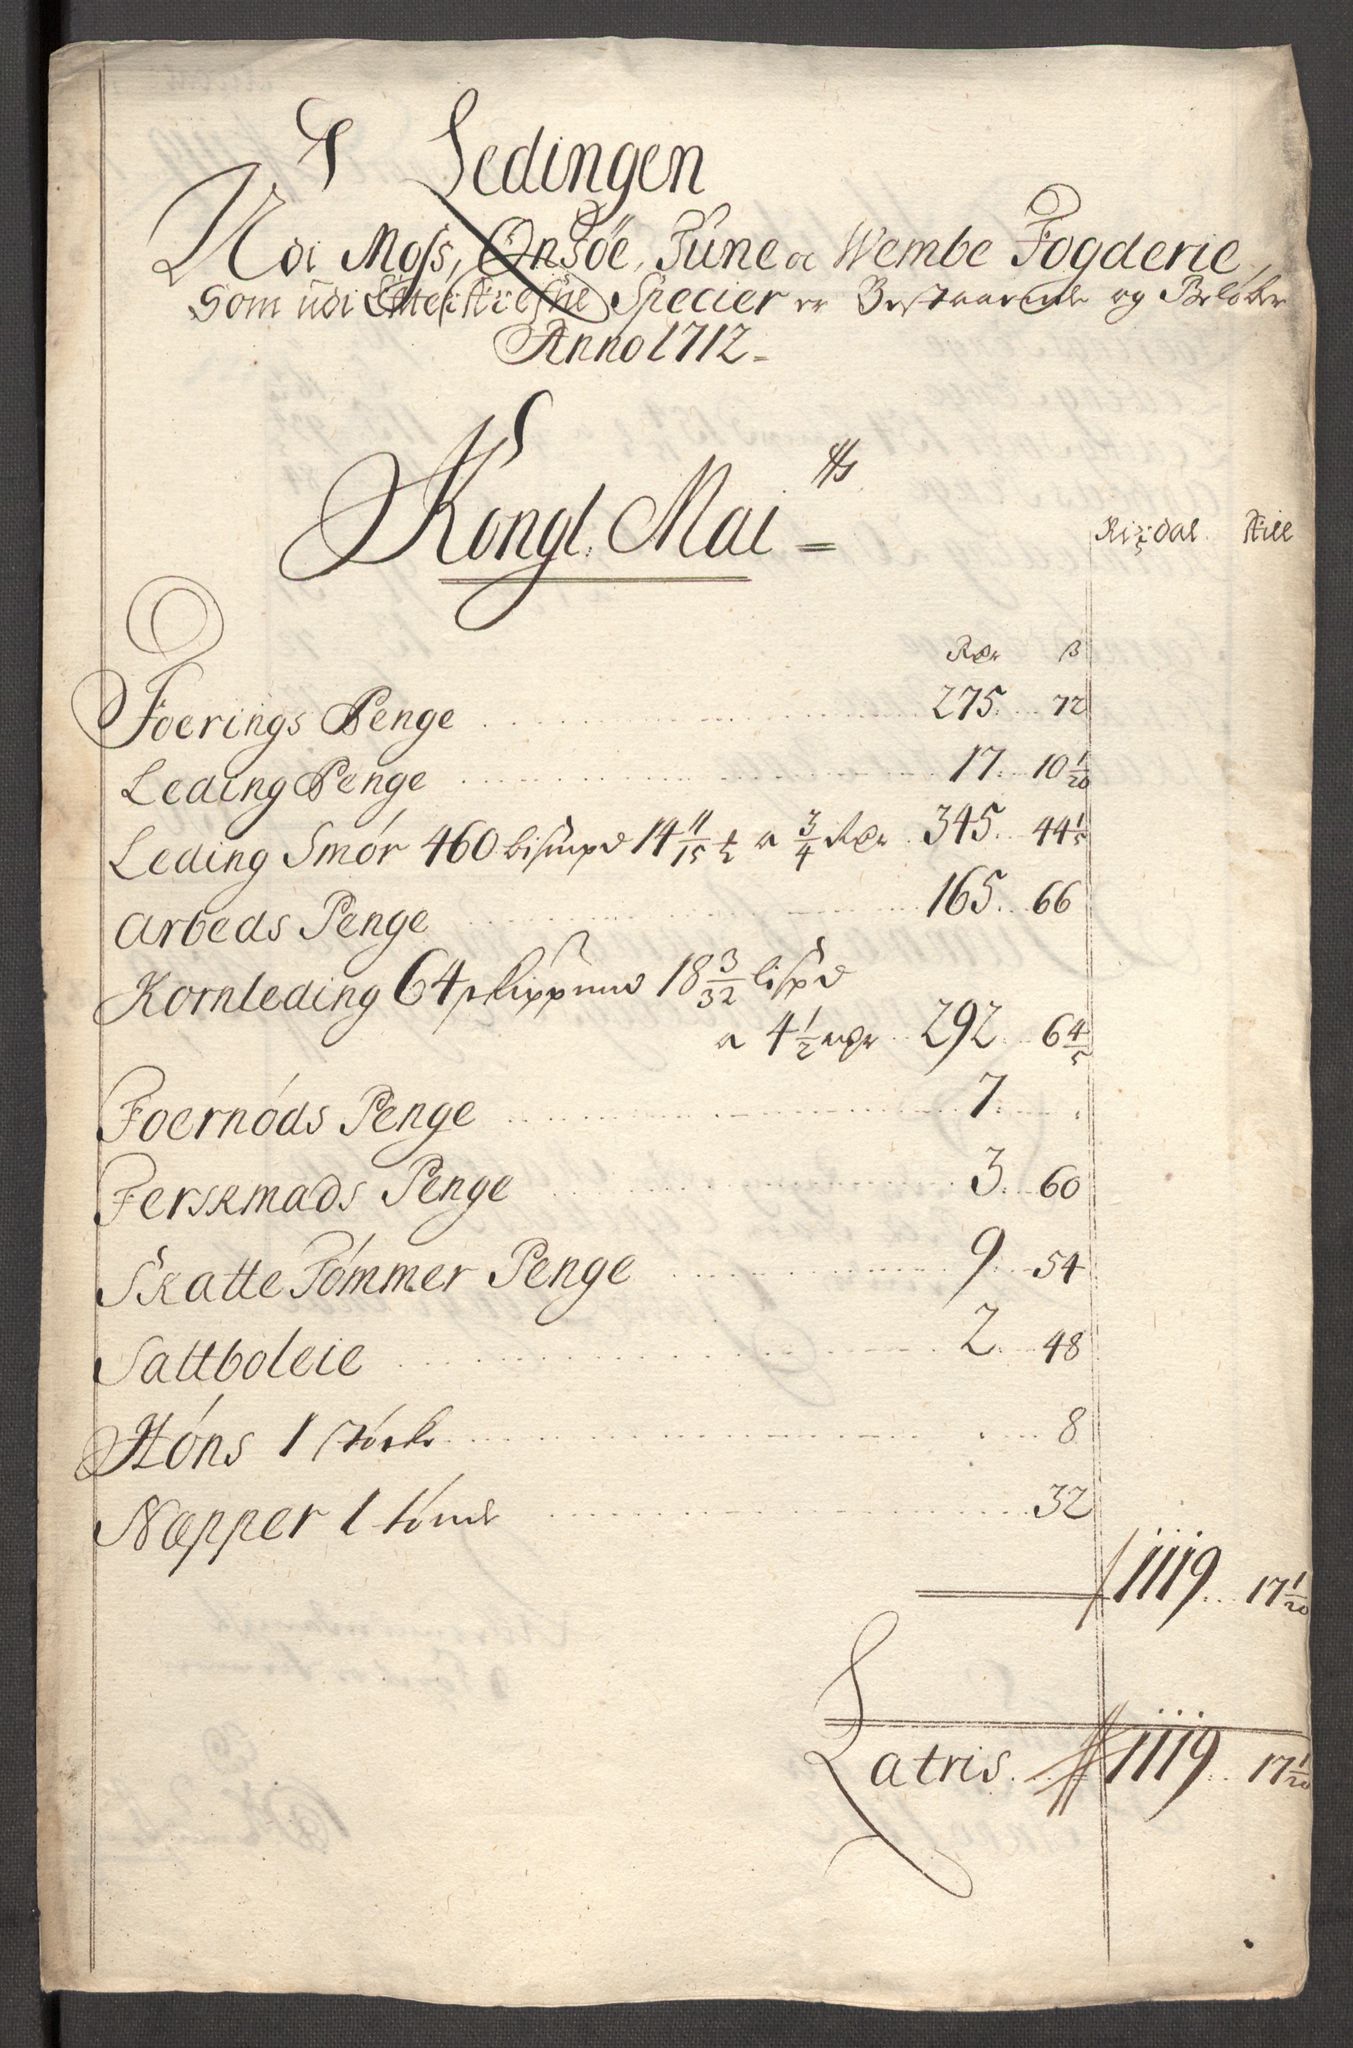 Ledingen
Udi Moss, Onsöe, Tune oc Wembe Fogderie,
Som udi Efterskrefne Specier er Bestaaende og Beløber
Anno 1712
Kongl. Mai tts
Rixdal. skill
Rdr ß
Foerings Penge 275 72
Leding Penge 17 10 1/20
Leding Smór 460 bismpd 14 11/15 £ a 3/4 Rdr 345 44 1/5
Arbeds Penge 165 66
Kornleding 64 skippund 18 3/32 lispd
a 4 1/2 rdr 292 6 4/5
Foernóds Penge 7
Ferskmads Penge 3 60
Skatte Tómmer Penge 9 54
Sattboleie 2 48
Hóns 1 störke 8
Næpper 1 tönde 32
1119 17 1/20
Latris 1119 17 1/20